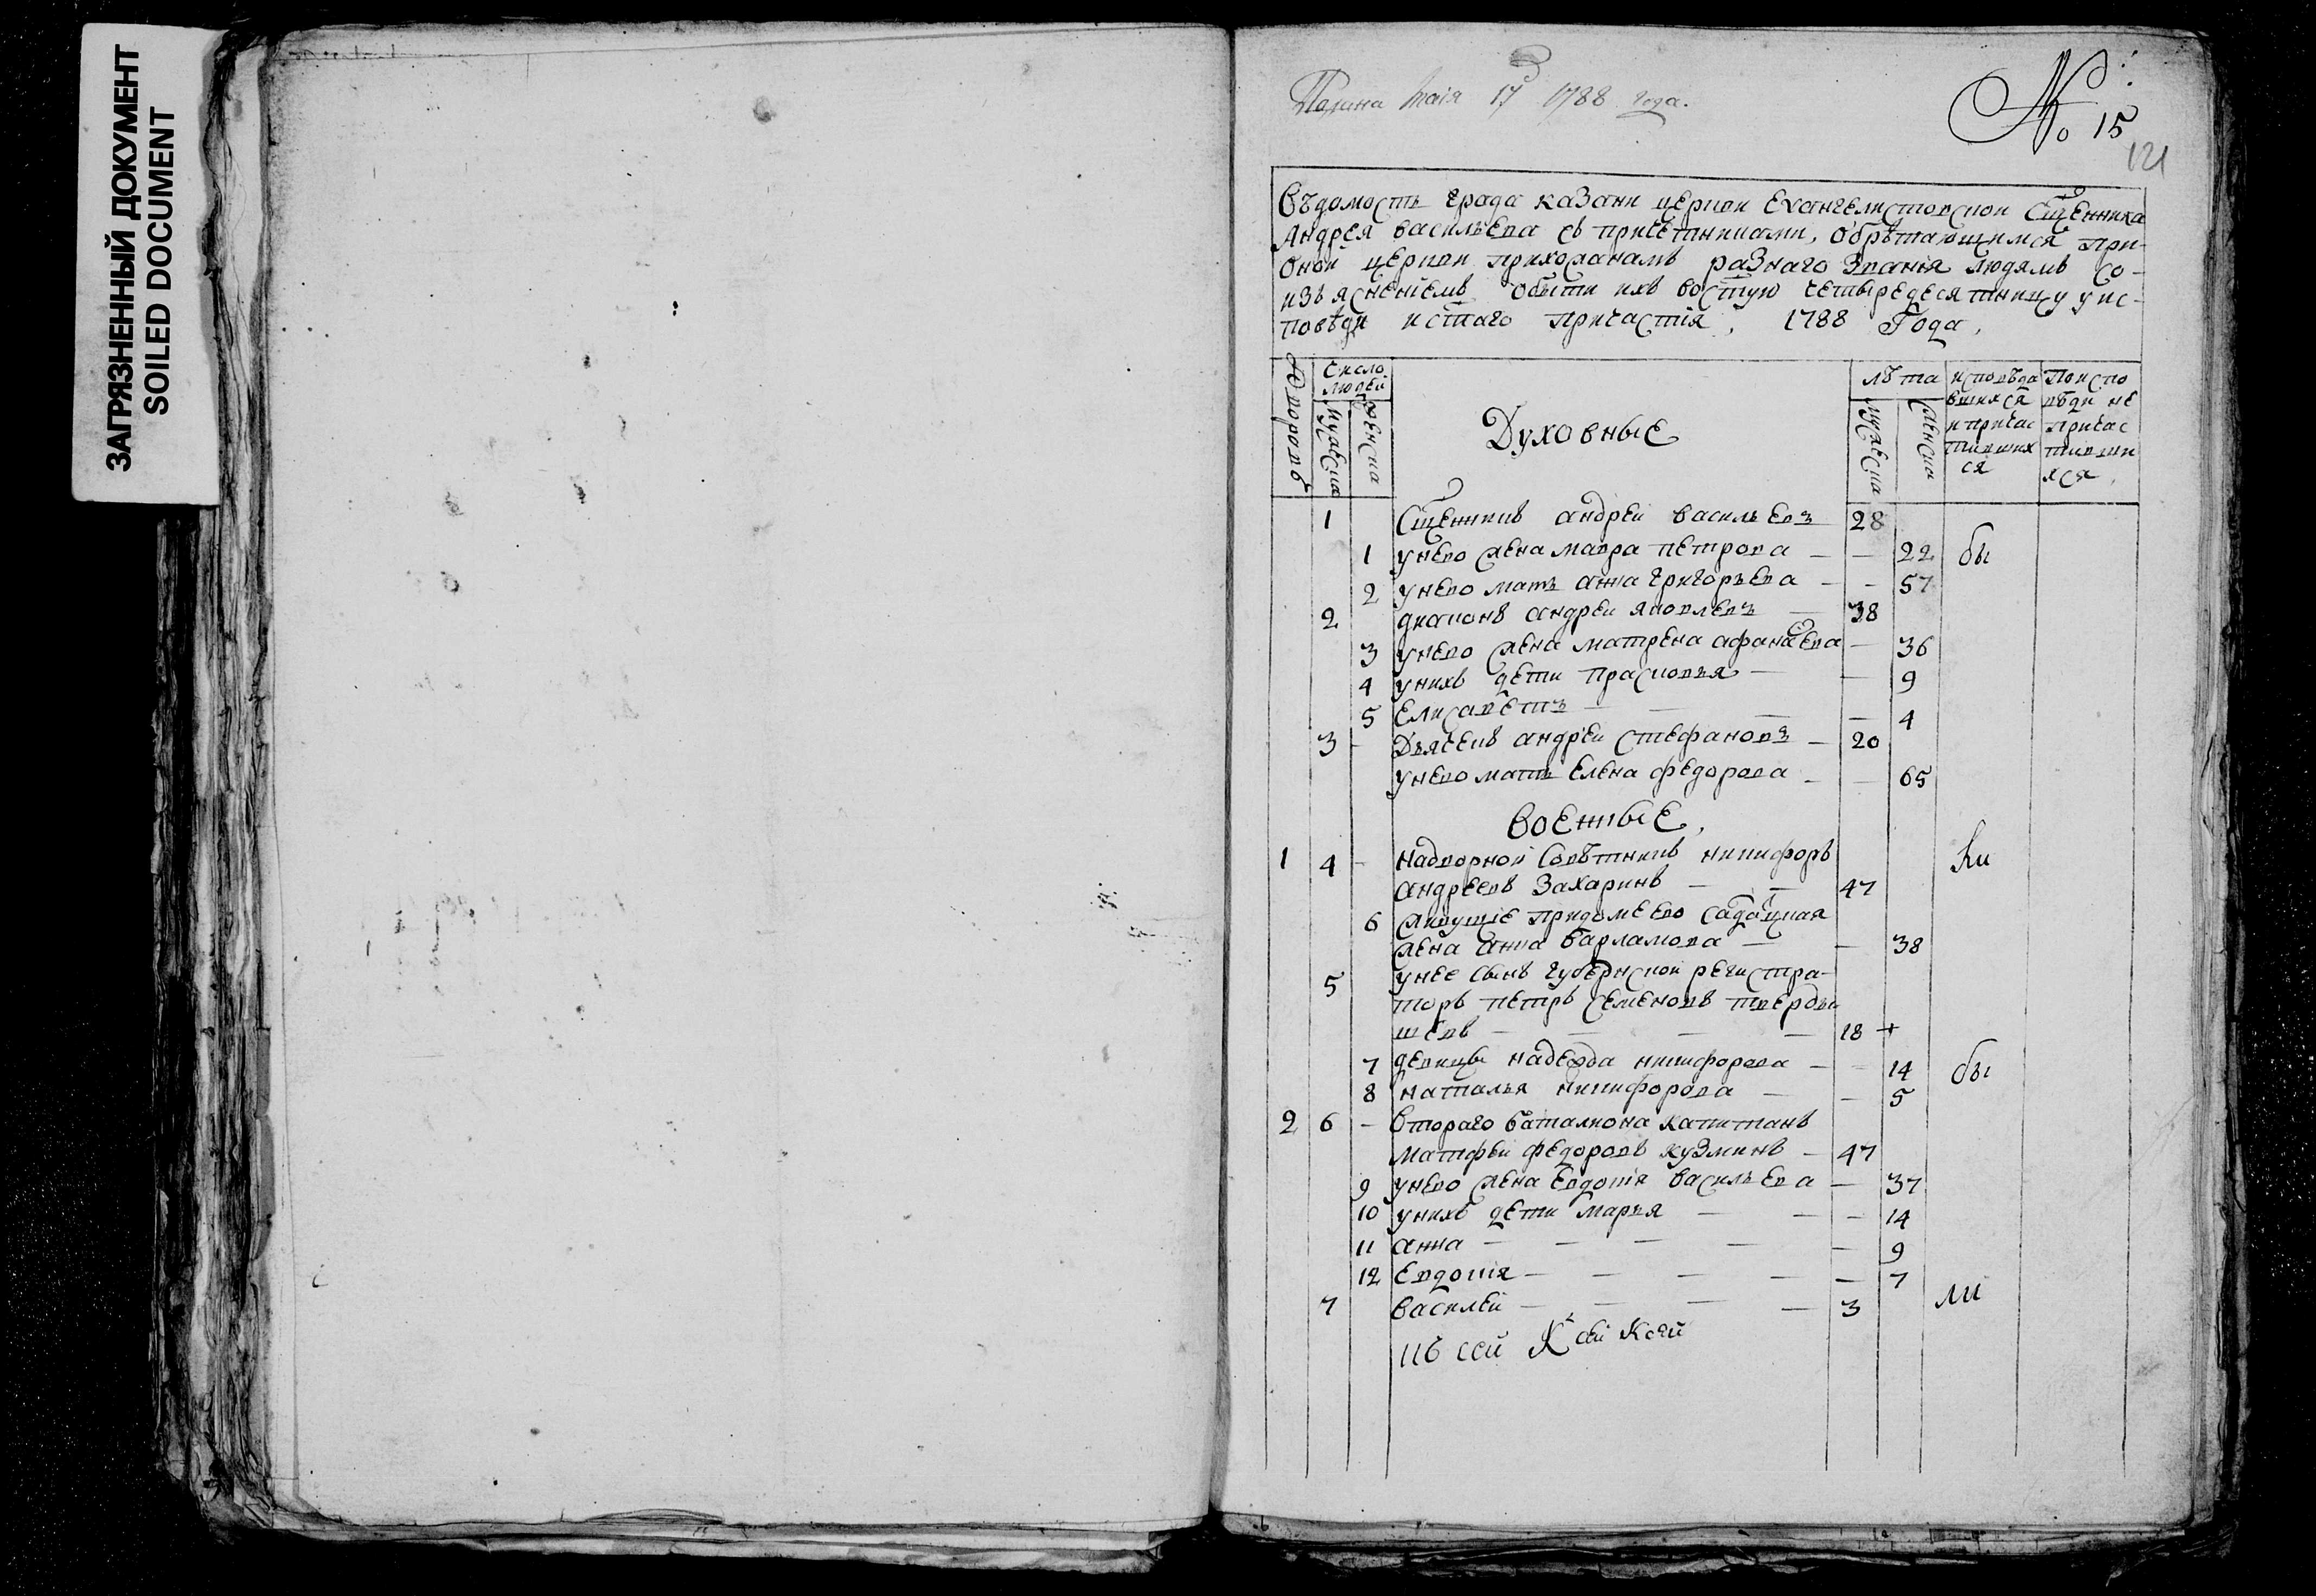 ЗАГРЯЗНЕННЫЙ ДОКУМЕНТ
SOILED DOCUMENT
Подана Маія 17 д 1788 года.
№ 15
121
Вѣдомость града казани церкви Евангелистовской Сщенника
Андрея васильева съ причетниками, обрѣтающимся при
оной церкви прихожанамъ разнаго званія людямъ со-
изъясненіемъ обытіи ихъ востую четыредесятницу у ис-
повѣди истаго причастія, 1788 Года,
Дворовъ
число людей
мужеска
женска
Духовные
лѣта
мужеска
женска
исповѣда
вшихся
и причас
тивших
ся
По испо
вѣди не
причас
тивши
хся
1 Сщенникъ андрей васильевъ 28
1 унево жена мавра петрова — — 22 бы
2 унево мать анна григорьева — — 57
2 диаконъ андрей яковлевъ — 38
3 унево жена матрена афанасева — 36
4 унихъ дети прасковья — — 9
5 Елисаветъ — — — — 4
3 - Дьячекъ андрей стефановъ — 20
унево мать Елена федорова — — 65
Военные,
1 4 - надворной совѣтникъ никифоръ ли
андреевъ Захаринъ — — 47
6 живущіе придоме ево салдацкая
жена анна варламова — — 38
5 унее сынъ губернской регистра-
торъ петръ семеновъ тверды
шевъ — — — — 18 +
7 девицы надежда никифорова — — 14 бы
8 наталья никифорова — — 5
2 6 - втораго баталиона капитанъ
матфей федоровъ кузминъ — 47
9 унево жена Евдокія васильева — 37
10 унихъ дети марья — — — 14
11 анна — — — — — 9
12 Евдокія — — — — — 7
7 василей — — — — 3 ли